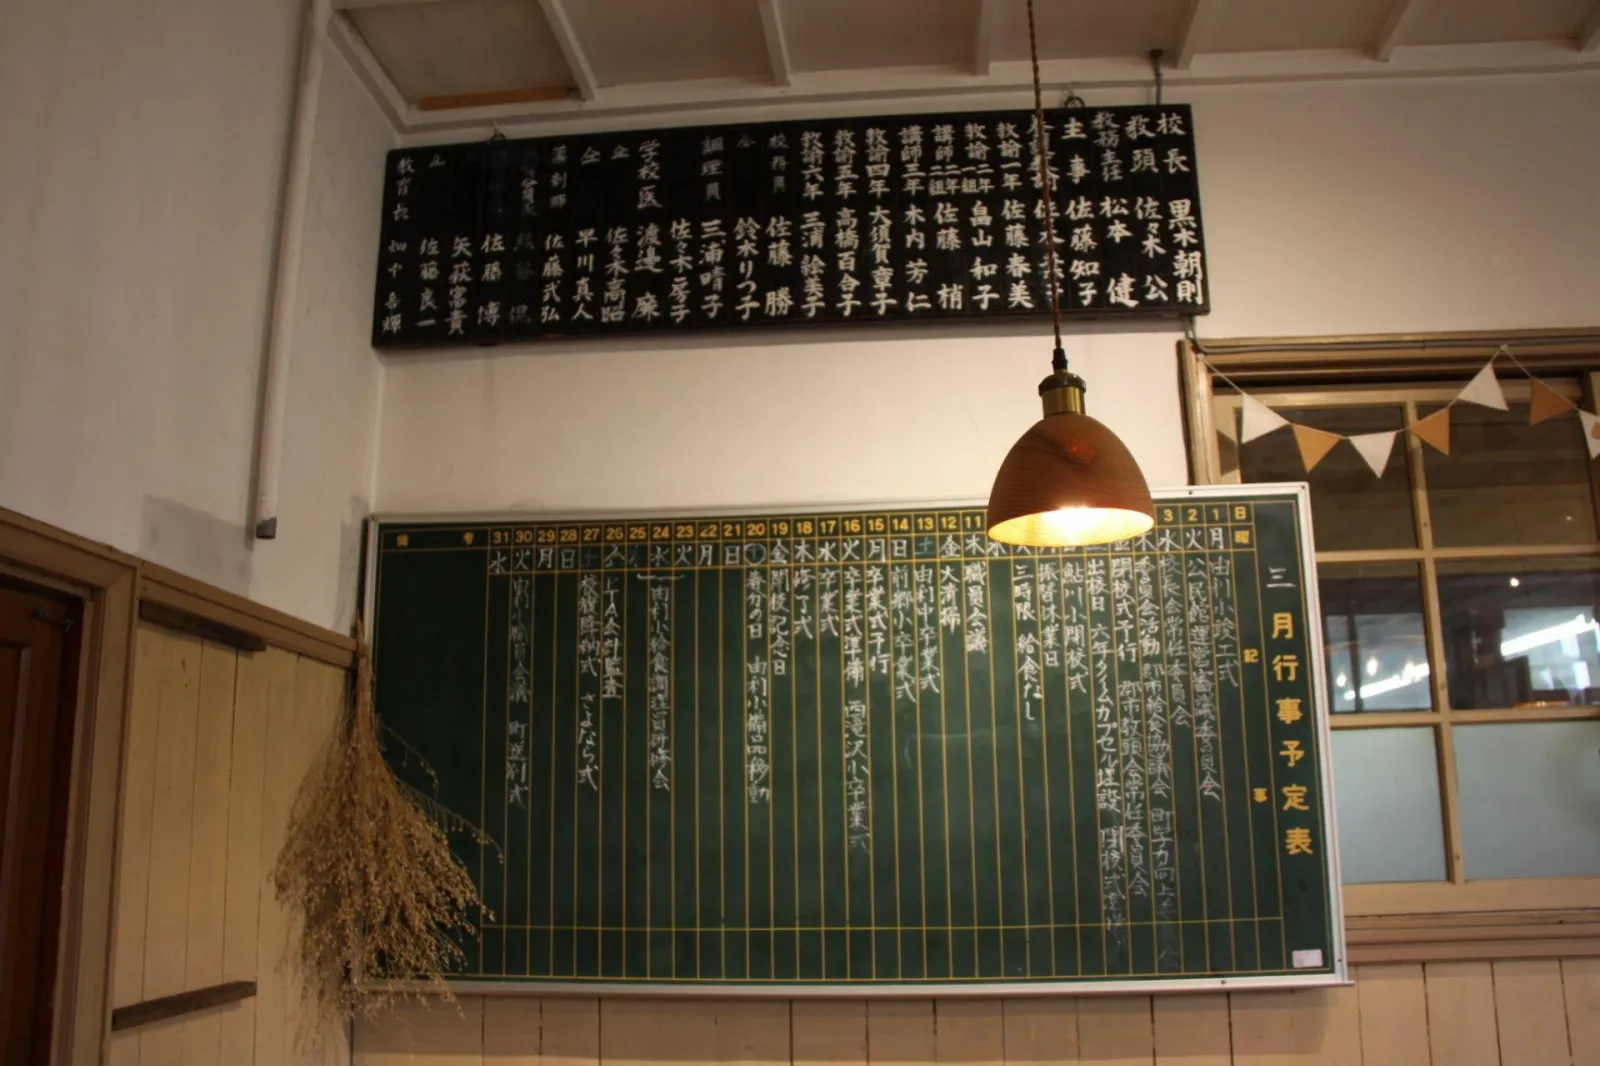 校長 黒木朝則
教頭 佐々木 公
教務主任 松本 健
主事 佐藤知子
教諭一年 佐藤春美
教諭二年一組 畠山和子
講師二年二組 佐藤 梢
講師三年 木内芳仁
教諭四年 大須賀章子
教諭五年 高橋百合子
教諭六年 三浦絵美子
校務員 佐藤 勝
仝 鈴木りつ子
調理員 三浦晴子
佐々木房子
学校医 渡邊 廉
仝 佐々木高昭
仝 早川真人
薬剤師 佐藤武弘
佐藤 博
矢萩常貴
仝 佐藤良一
教育長 畑中喜輝
三月行事予定表
日 曜 記事
1 月 由利小竣工式
2 火 公民館運営審議委員会
3 水 校長会常任委員会 町学力向上
木 委員会活動 郡市給食協議会 郡市教頭会常任委員会
金 閉校式予行
出校日 六年タイムカプセル埋設
鮎川小閉校式
振替休業日
火 三時限 給食なし
水
11 木 職員会議
12 金 大清掃
13 土 由利中卒業式
14 日 前郷小卒業式
15 月 卒業式予行
16 火 卒業式準備 西滝沢小卒業式
17 水 卒業式
18 木 修了式
19 金 閉校記念日
20 土 春分の日 由利小備品移動
21 日
22 月
23 火
24 水 由利小給食調理員研修会
25 木
26 金 PTA会計監査
27 土 校旗降納式 さよなら式
28 日
29 月
30 火 由利小職員会議 町送別式
31 水
備考